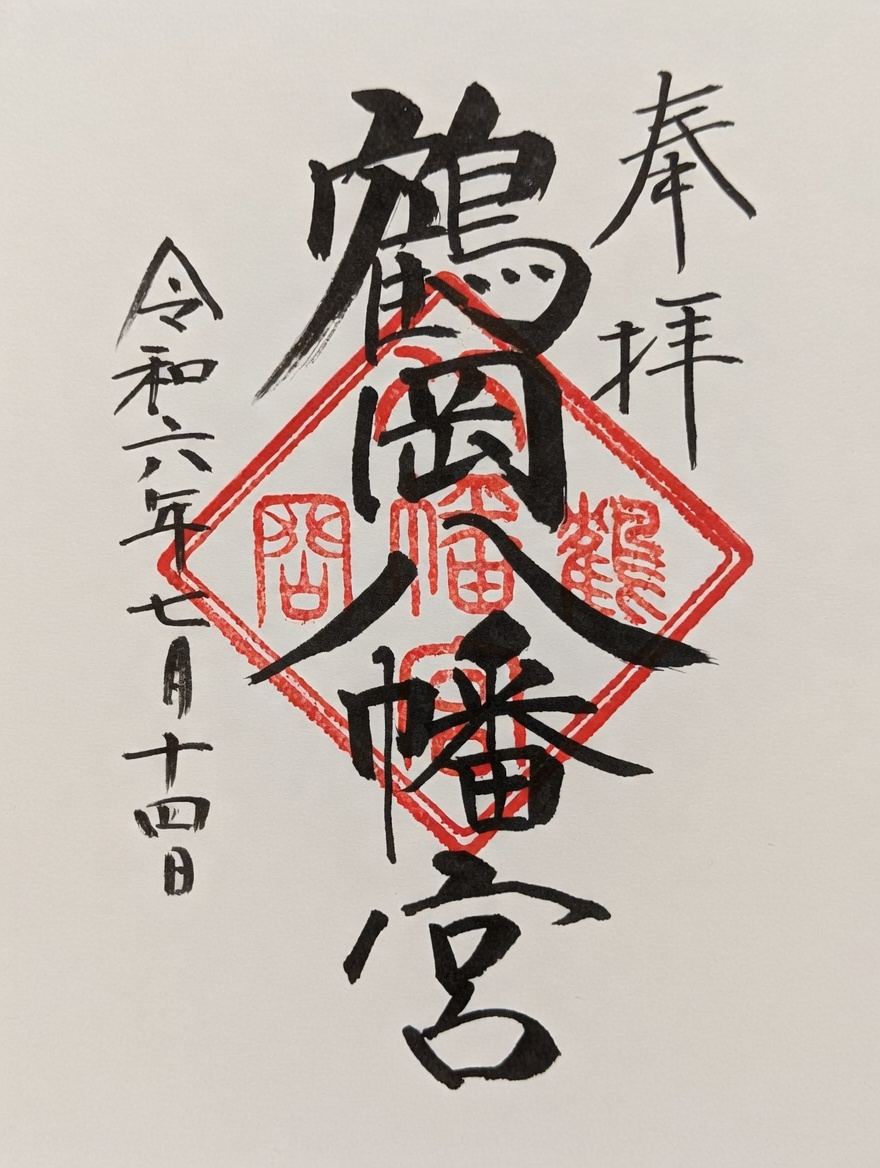 奉拝
鶴岡八幡宮
令和六年七月十四日
鶴
八幡宮
岡